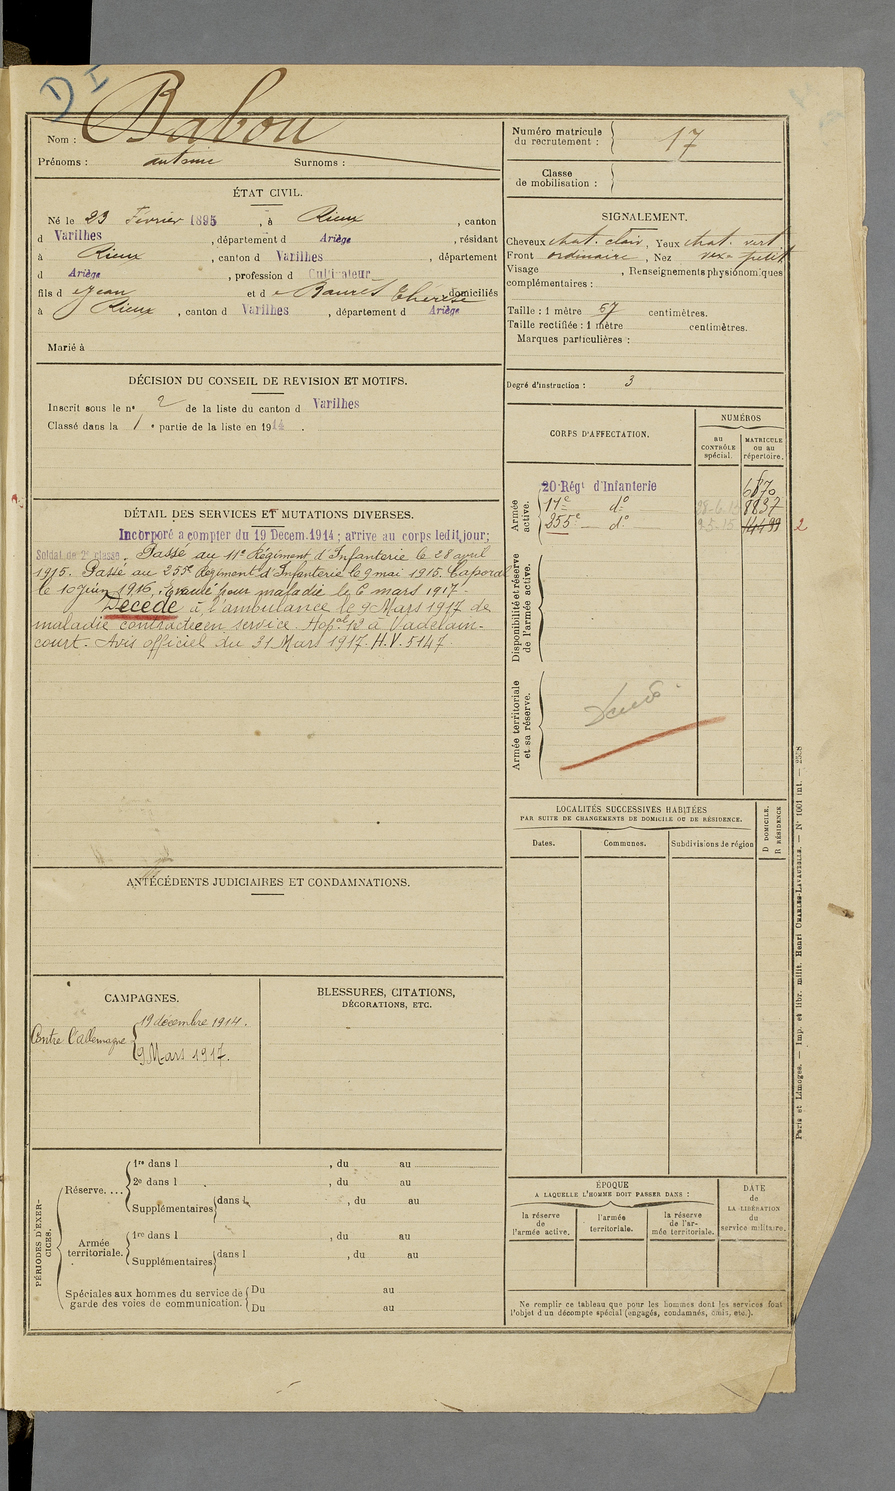 D I
Nom : Babou
Prénoms : antoine Surnoms :
ÉTAT CIVIL.
Né le 23 Février 1895, à Rieux, canton
d Varilhes, département d Ariège, résidant
à Rieux, canton d Varilhes, département
d Ariège, profession d Cultivateur
fils d e Jean et d e Baures Thérèse domiciliés
à Rieux, canton d Varilhes, département d Ariège
Marié à
DÉCISION DU CONSEIL DE REVISION ET MOTIFS.
Inscrit sous le n° 2 de la liste du canton d Varilhes
Classé dans la 1 e partie de la liste en 1914.
DÉTAIL DES SERVICES ET MUTATIONS DIVERSES.
Incorporé a compter du 19 Décem.1914 ; arrive au corps ledit jour;
Soldat de 2e classe. Passé au 11e Régiment d'Infanterie le 28 avril
1915. Passé au 255e Régiment d'Infanterie le 9 mai 1915. Caporal
le 10 juin 1916, évacué pour maladie le 6 mars 1917.
Décédé à l'ambulance le 9 Mars 1917 de
maladie contractée en service. Hopal 12 à Vadelain-
court. Avis officiel du 31 Mars 1917. H.V. 5147.
ANTÉCÉDENTS JUDICIAIRES ET CONDAMNATIONS.
CAMPAGNES.
Contre l'allemagne
19 décembre 1914.
9 Mars 1917.
BLESSURES, CITATIONS,
DÉCORATIONS, ETC.
PÉRIODES D'EXER-
CICES.
Réserve....
1re dans l , du au
2e dans l , du au
Supplémentaires dans l , du au
Armée
territoriale.
1re dans l , du au
Supplémentaires dans l , du au
Spéciales aux hommes du service de
garde des voies de communication.
Du au
Du au
Numéro matricule
du recrutement : 17
Classe
de mobilisation :
SIGNALEMENT.
Cheveux chat. clair, Yeux chat. vert
Front ordinaire, Nez petit
Visage , Renseignements physionomiques
complémentaires :
Taille : 1 mètre 67 centimètres.
Taille rectifiée : 1 mètre centimètres.
Marques particulières :
Degré d'instruction : 3
CORPS D'AFFECTATION.
NUMÉROS
au
CONTRÔLE
spécial.
MATRICULE
ou au
répertoire.
Armée
active.
20 Régt d'Infanterie 6870
11e do 8837
255e do 14499
2
Disponibilité et réserve
de l'armée active.
Armée territoriale
et sa réserve.
LOCALITÉS SUCCESSIVES HABITÉES
PAR SUITE DE CHANGEMENTS DE DOMICILE OU DE RÉSIDENCE.
Dates.
Communes.
Subdivisions de région
D DOMICILE.
R RÉSIDENCE
ÉPOQUE
A LAQUELLE L'HOMME DOIT PASSER DANS :
la réserve
de
l'armée active.
l'armée
territoriale.
la réserve
de l'ar-
mée territoriale.
DATE
de
LA LIBÉRATION
du
service militaire.
Ne remplir ce tableau que pour les hommes dont les services font
l'objet d'un décompte spécial (engagés, condamnés, omis, etc.).
Paris et Limoges. — Imp. et libr. milit. Henri CHARLES-LAVAUZELLE. — N° 1001 int. — 2528